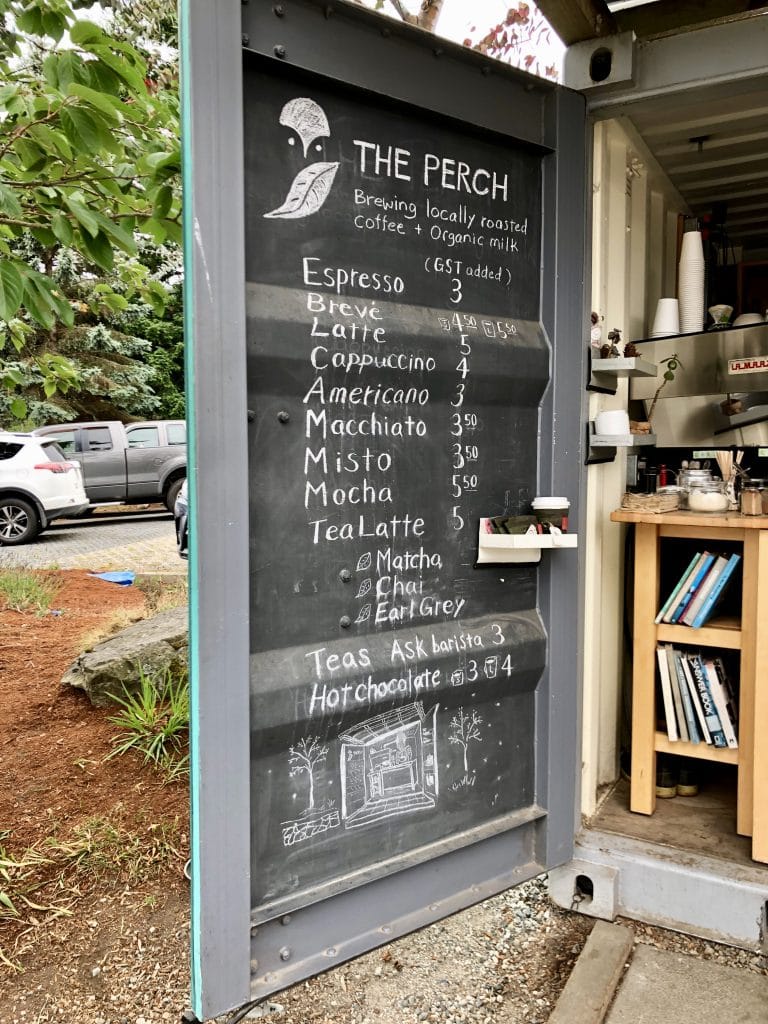 THE PERCH
Brewing locally roasted
coffee + Organic milk
(GST added)
Espresso 3
Brevé S 4.50 L 5.50
Latte 5
Cappuccino 4
Americano 3
Macchiato 3.50
Misto 3.50
Mocha 5.50
Tea Latte 5
Matcha
Chai
Earl Grey
Teas Ask barista 3
Hot chocolate S 3 L 4
LA MARZ